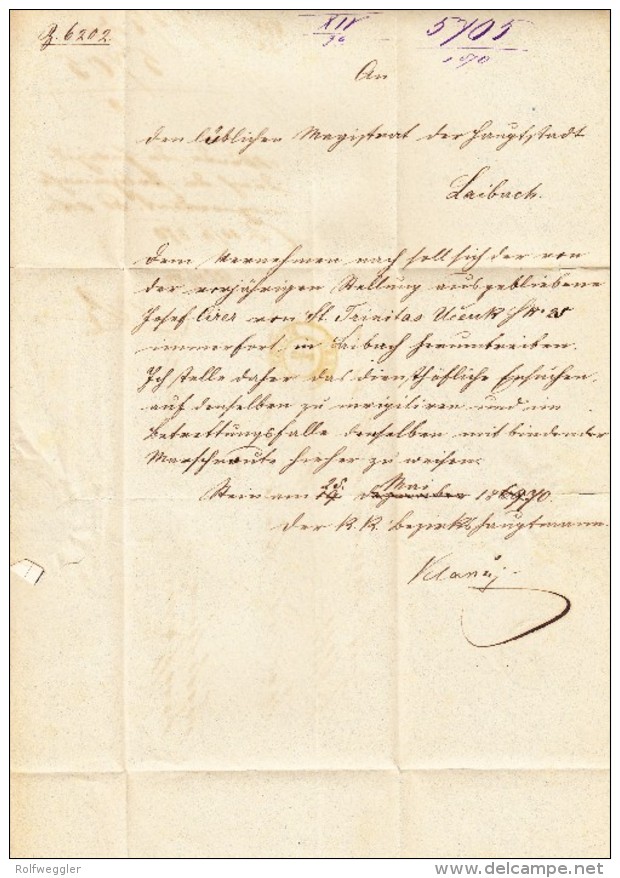 Z. 6202.
XIV
5705
An
den löblichen Magistrat der Hauptstadt
Laibach.
Dem Vernehmen nach soll sich der von
der vorjährigen Stellung ausgebliebene
Josef von St. Trinitas
immerfort in Laibach herumtreiben.
Ich stelle daher das diensthöfliche Ersuchen,
auf denselben zu invigiliren und im
Betrettungsfalle denselben mit bindender
Marschroute hieher zu weisen.
Stein am 28. Mai 1870.
Der K. K. Bezirkshauptmann.
Rolfweggler
delcampe.net